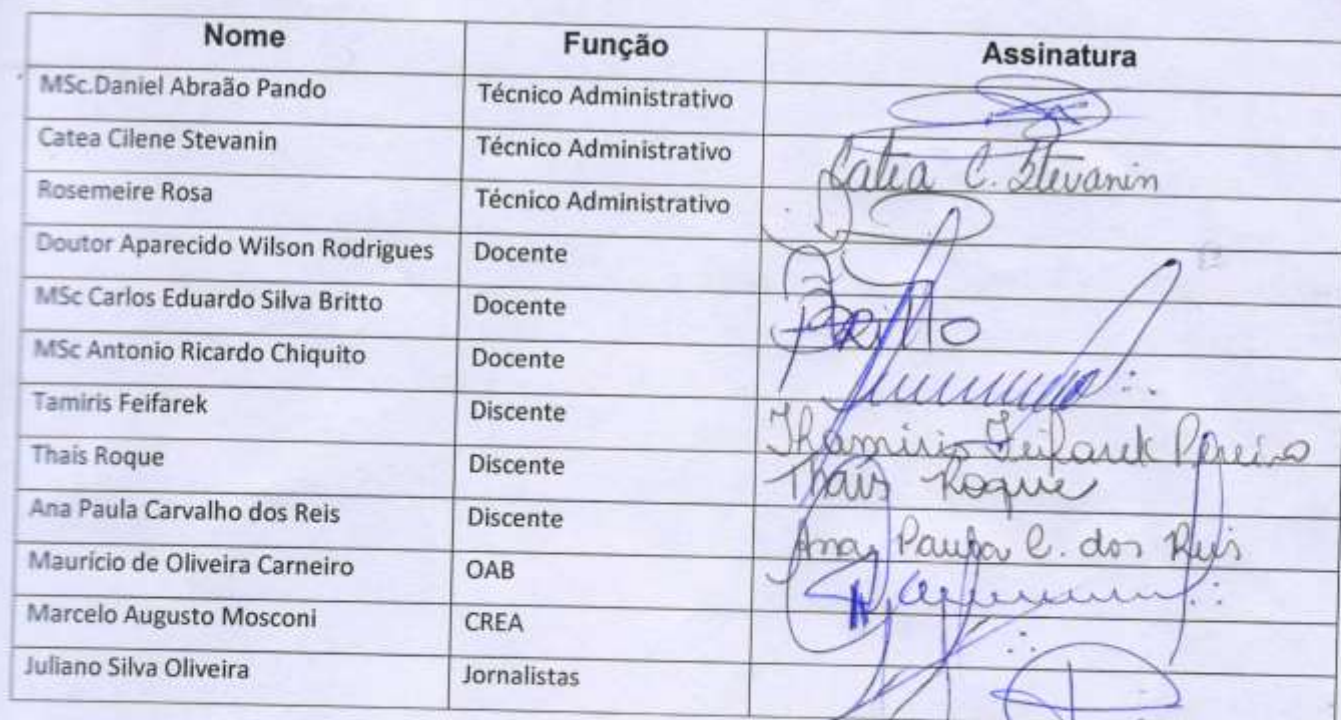 Nome Função Assinatura
MSc.Daniel Abraão Pando Técnico Administrativo
Catea Cilene Stevanin Técnico Administrativo Catea C. Stevanin
Rosemeire Rosa Técnico Administrativo
Doutor Aparecido Wilson Rodrigues Docente
MSc Carlos Eduardo Silva Britto Docente Britto
MSc Antonio Ricardo Chiquito Docente
Tamiris Feifarek Discente Thamiris Feifarek Pereira
Thais Roque Discente Thais Roque
Ana Paula Carvalho dos Reis Discente Ana Paula C. dos Reis
Maurício de Oliveira Carneiro OAB
Marcelo Augusto Mosconi CREA
Juliano Silva Oliveira Jornalistas